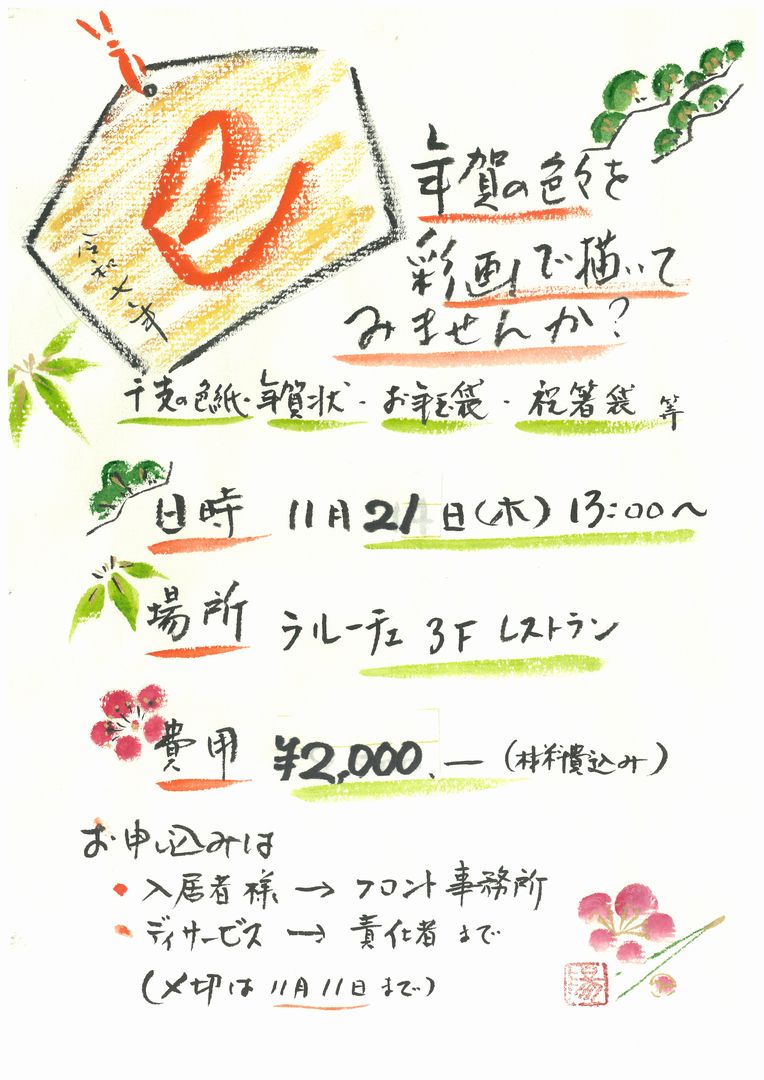 巳
年賀の色々を
彩画で描いて
みませんか?
干支の色紙・年賀状・お年玉袋・祝箸袋 等
日時 11月21日(木) 13:00~
場所 ラルーチェ 3F レストラン
費用 ¥2,000.― (材料費込み)
お申し込みは
・入居者様 → フロント事務所
・デイサービス → 責任者まで
(〆切は11月11日まで)
湯